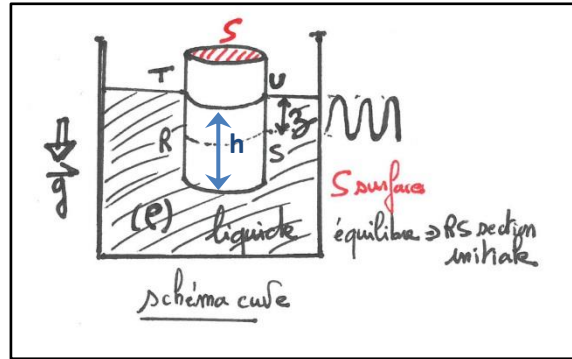 S
T
U
z
R
h
S
g
(ρ)
liquide
S surfaces
équilibre ⇒ RS section
initiale
schéma cuve